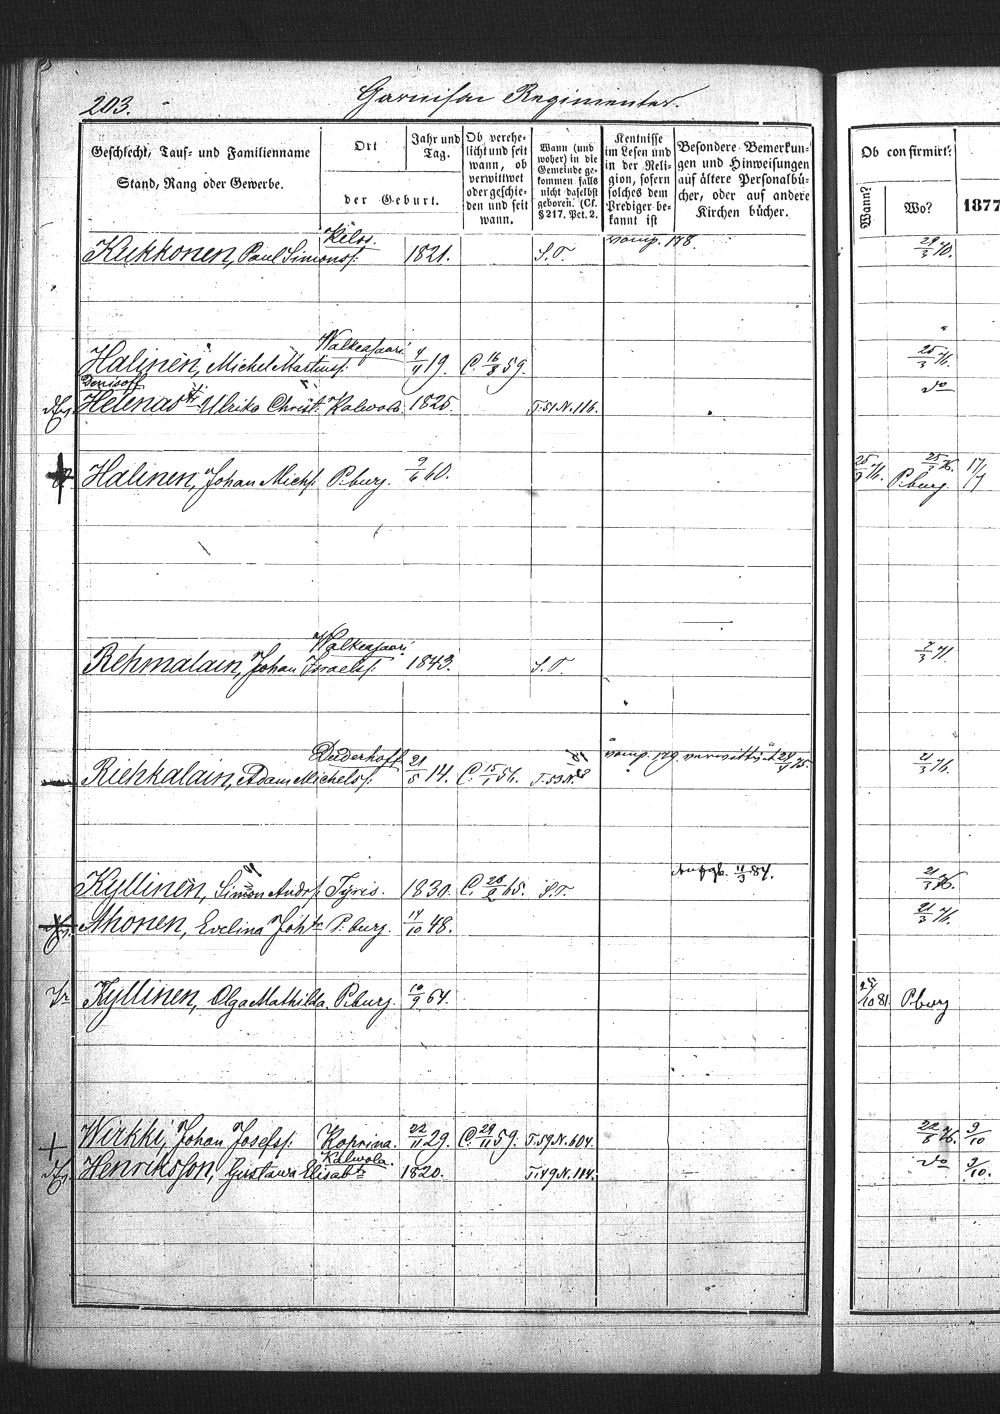 203. Garnison Regimenter.
Geschlecht, Tauf- und Familienname
Stand, Rang oder Gewerbe.
Ort
der Geburt.
Jahr und
Tag.
Ob verehe-
licht und seit
wann, ob
verwittwet
oder geschie-
den und seit
wann.
Wann (und
woher) in die
Gemeinde ge-
kommen falls
nicht daselbst
geboren. (Cf.
§ 217. Pct. 2.
Kentnisse
im Lesen und
in der Reli-
gion, sofern
solches dem
Prediger be-
kannt ist
Besondere Bemerkun-
gen und Hinweisungen
auf ältere Personalbü-
cher, oder auf andere
Kirchen bücher.
Ob confirmirt:
Wann?
Wo?
1877
Kukkonen, Paul Simonsf. 1821. S.T. 178. 29/3 70.
Walkeasaari
Halinen, Michel Martinsf. 4/11 19. C. 16/8 59. 25/3 76.
Denisoff
Helenas Ulrika Christ. Kalwola 1825. T.51 N.116. do
Halinen, Johan Michf. P.burg. 9/6 60. 25/3 76. P.burg. 25/3 76. 17/7
Walkeasaari
Rehmalain, Johan Israelsf. 1843. S.T. 7/3 71.
Duderhoff
Riehkalain, Adam Michelsf. 21/5 14. C. 15/1 56. T.53 N. 179 verwittw. 21/3 76.
Kyllinen, Simon Andrsf. Tyris. 1830. C. 28/2 65. S.T. 11/3 84. 21/3 76.
Ahonen, Evelina Joh.tr P.burg. 14/10 48. 21/3 76.
Kyllinen, Olga Mathilda. P.burg. 10/9 64. 10 81. P.burg
Wirkki, Johan Josefsf. Koprina. 22/11 29. C. 29/11 59. T.59 N.604. 22/5 76. 3/10
Kalwola
Henriksson, Gustawa Elisabtr 1820. T.49 N.114. do 3/10.